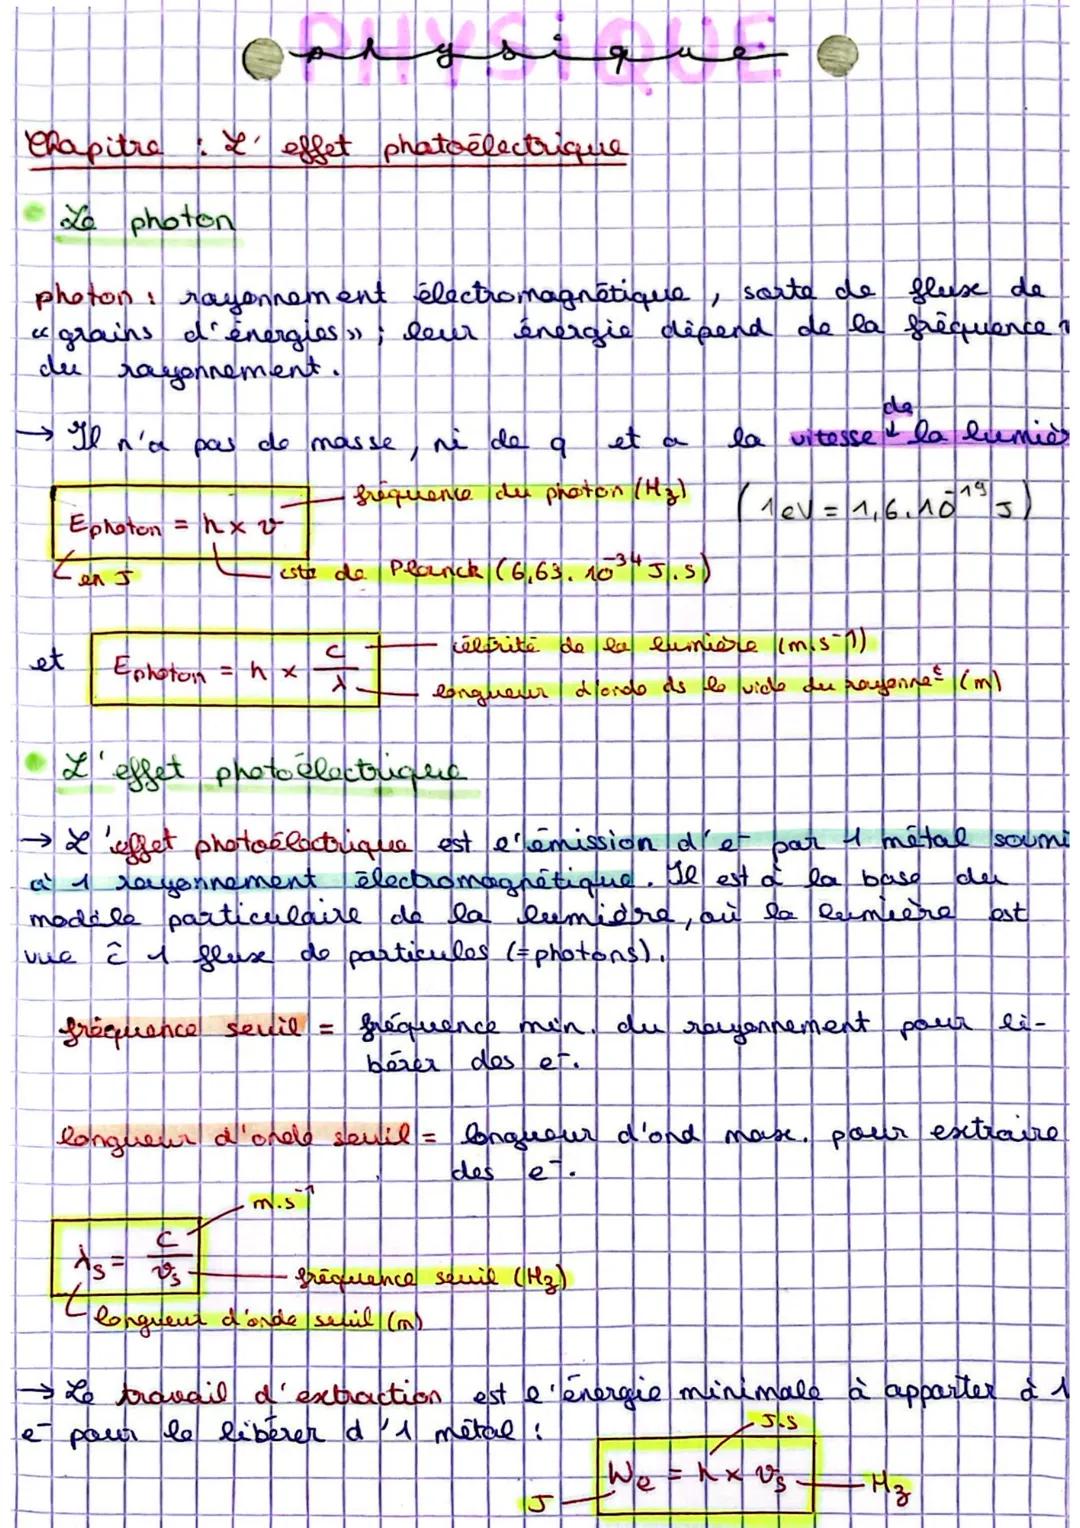 PHYSIQUE
physique
Chapitre : L'effet photoélectrique
Le photon
photon : rayonnement électromagnétique, sorte de flux de
« grains d'énergies » ; leur énergie dépend de la fréquence
du rayonnement.
de
→ Il n'a pas de masse, ni de q et a la vitesse ↓ la lumièr
fréquence du photon (Hz)
(1 eV = 1,6.10⁻¹⁹ J)
Ephoton = h x ν
en J
cste de Planck (6,63.10⁻³⁴ J.s)
célérité de la lumière (m.s⁻¹)
et Ephoton = h x c/λ
longueur d'onde ds le vide du rayonneᵗ (m)
L'effet photoélectrique
→ L'effet photoélectrique est l'émission d'e⁻ par 1 métal soumi
à 1 rayonnement électromagnétique. Il est à la base du
modèle particulaire de la lumière, où la lumière est
vue ĉ 1 flux de particules (=photons).
fréquence seuil = fréquence min. du rayonnement pour li-
bérer des e⁻.
longueur d'onde seuil = longueur d'ond max. pour extraire
des e⁻.
m.s⁻¹
λs = c/νs
fréquence seuil (Hz)
longueur d'onde seuil (m)
→ Le travail d'extraction est l'énergie minimale à apporter à 1
e⁻ pour le libérer d'1 métal :
J.s
We = h x νs
Hz
J